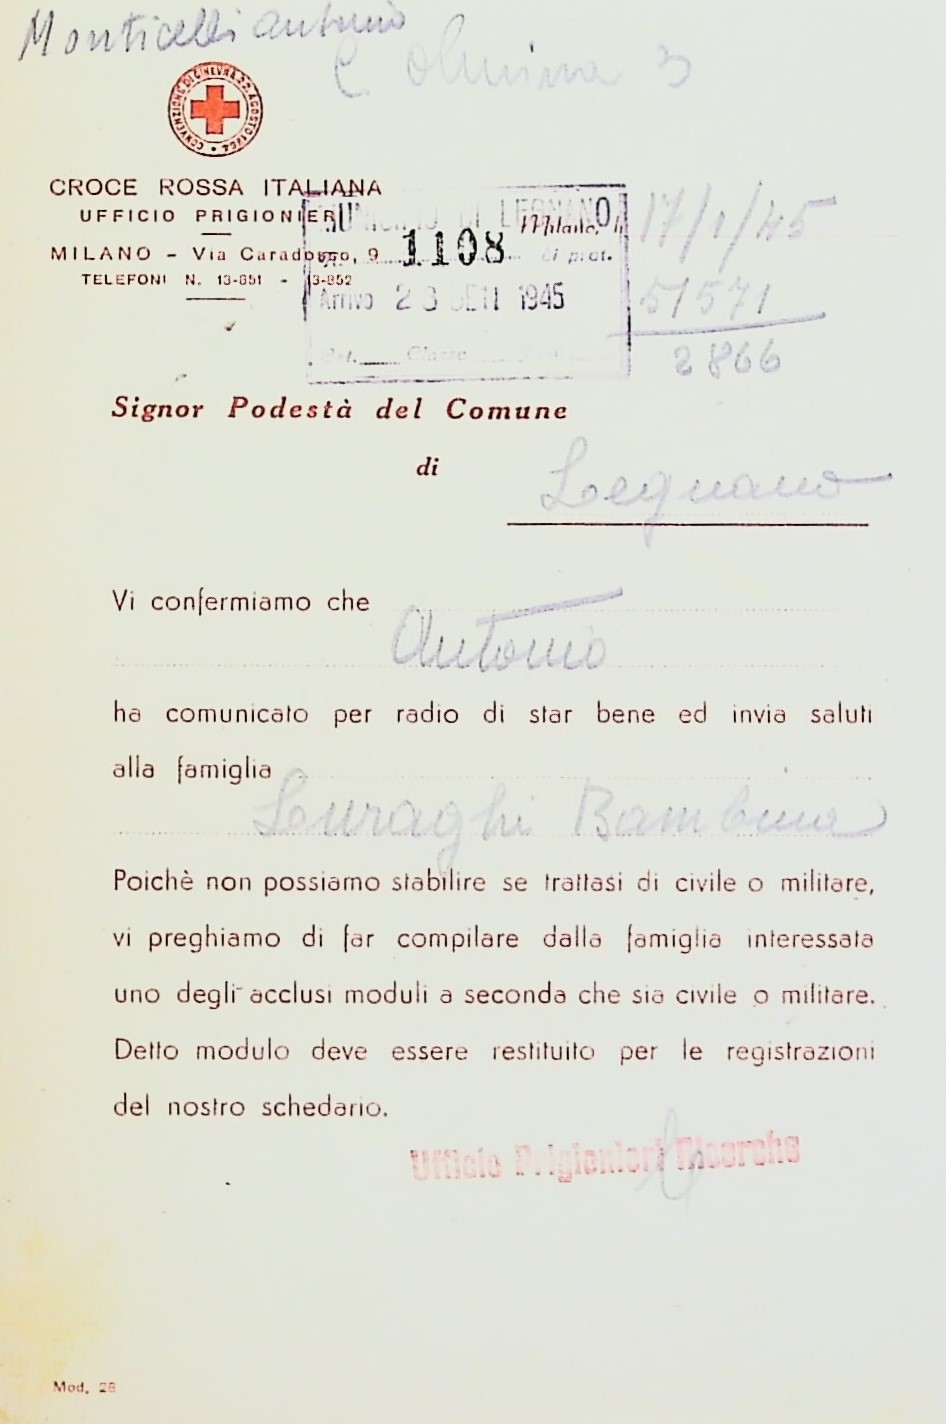 Monticelli Antonio
C. Olmina 3
CONVENZIONE DI GINEVRA 22 AGOSTO 1864
CROCE ROSSA ITALIANA
UFFICIO PRIGIONIERI
MILANO - Via Caradosso, 9
TELEFONI N. 13-851 - 13-852
MUNICIPIO DI LEGNANO
Milano, li 17/1/45
1108 di prot.
Arrivo 23 GEN 1945
51571
Cat. Classe
2866
Signor Podestà del Comune
di
Legnano
Vi confermiamo che
Antonio
ha comunicato per radio di star bene ed invia saluti
alla famiglia
Luraghi Bambina
Poichè non possiamo stabilire se trattasi di civile o militare,
vi preghiamo di far compilare dalla famiglia interessata
uno degli acclusi moduli a seconda che sia civile o militare.
Detto modulo deve essere restituito per le registrazioni
del nostro schedario.
Ufficio Prigionieri Ricerche
Mod. 28